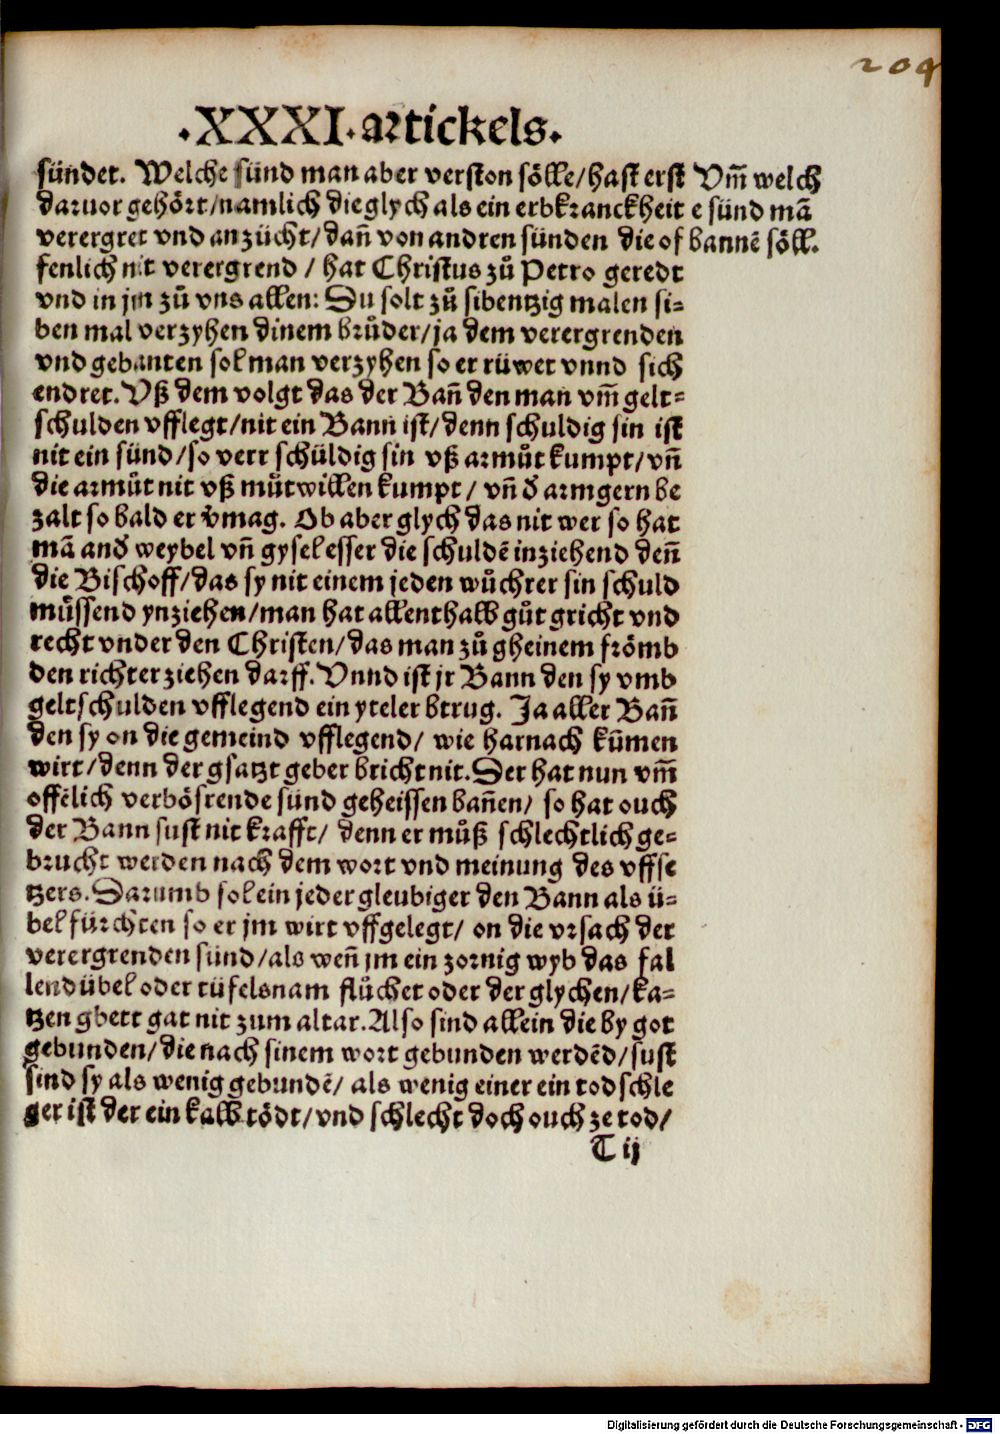 204
.XXXI. artickels.
sündet. Welche sünd man aber verston sölle/hast erst
daruor gehört/namlich die glych als ein erbkranckheit
verergret vnd anzücht/dañ von andren sünden die of
fenlich nit verergrend / hat Christus zů Petro geredt
vnd in jm zů vns allen: Du solt zů sibentzig malen si⸗
ben mal verzyhen dinem brůder/ja dem verergrenden
vnd gebanten sol man verzyhen so er rüwet vnnd sich
endret. Vß dem volgt das der Bañ den man vm̃ gelt⸗
schulden vfflegt/nit ein Bann ist/denn schuldig sin ist
nit ein sünd/so verr schüldig sin vß armůt kumpt/vñ
die armůt nit vß můtwillen kumpt/ vñ d̕ arm gern be
zalt so bald er v̕mag. Ob aber glych das nit wer so hat
mā and̕ weybel vñ gyselesser die schuldē inziehend deñ
die Bischoff/das sy nit einem jeden wůchrer sin schuld
můssend ynziehen/man hat allenthalb gůt gricht vnd
recht vnder den Christen/das man zů gheinem frömb
den richter ziehen darff. Vnnd ist jr Bann den sy vmb
geltschulden vfflegend ein yteler btrug. Ja aller Bañ
den sy on die gemeind vfflegend/ wie harnach kūmen
wirt/denn der gsatzt geber bricht nit. Der hat nun vm̃
offēlich verbösrende sünd geheissen bañen/ so hat ouch
der Bann sust nit krafft/ denn er můß schlechtlich ge⸗
brucht werden nach dem wort vnd meinung des vffse
tzers. Darumb sol ein jeder gleubiger den Bann als ü⸗
bel fürchten so er jm wirt vffgelegt/ on die vrsach der
verergrenden sünd/als weñ jm ein zornig wyb das fal
lend übel oder tüfelsnam flüchet oder der glychen/ka⸗
tzen gbett gat nit zum altar. Also sind allein die by got
gebunden/die nach sinem wort gebunden werdēd/sust
sind sy als wenig gebundē/ als wenig einer ein todschle
ger ist der ein kalb tödt/vnd schlecht doch ouch ze tod/
T ij
Vm̃ welch
e sünd mā
bannē söll.
Digitalisierung gefördert durch die Deutsche Forschungsgemeinschaft - DFG